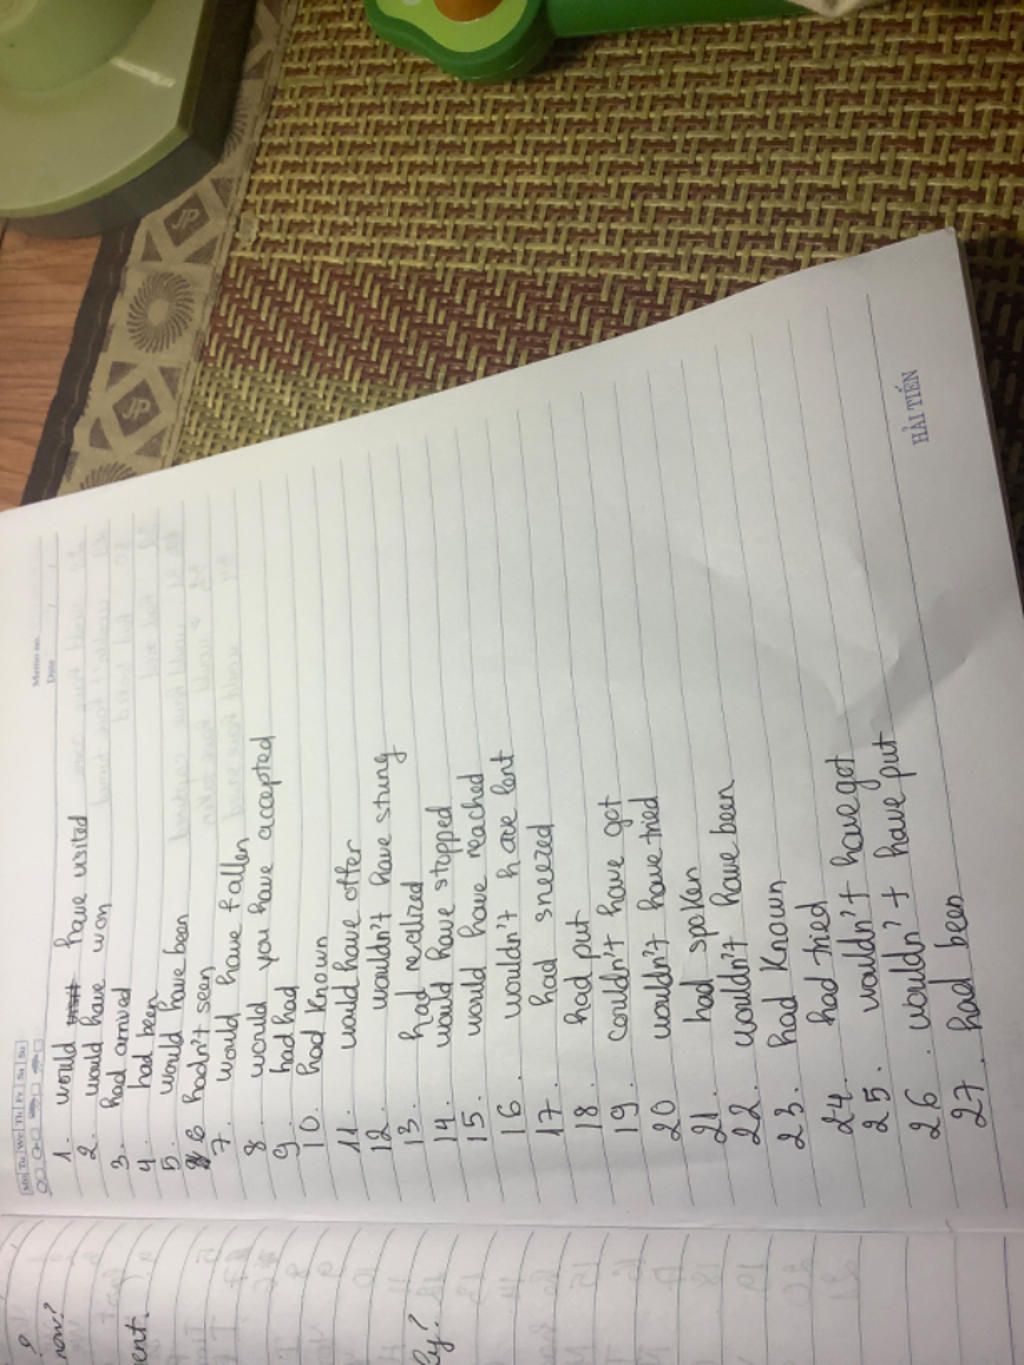 Mo Tu We Th Fr Sa Su
Memo no.
Date
1. would have visited
2. would have won
3. had arrived
4. had been
5. would have been
6 hadn't seen
7. would have fallen
8 would you have accepted
9. had had
10. had known
11. would have offer
12. wouldn't have stung
13. had realized
14. would have stopped
15. would have reached
16. wouldn't have lent
17. had sneezed
18. had put
19. couldn't have got
20 wouldn't have tried
21. had spoken
22. wouldn't have been
23. had known
24. had tried
25. wouldn't have got
26. wouldn't have put
27. had been
HẢI TIẾN
now?
ent.
ly?